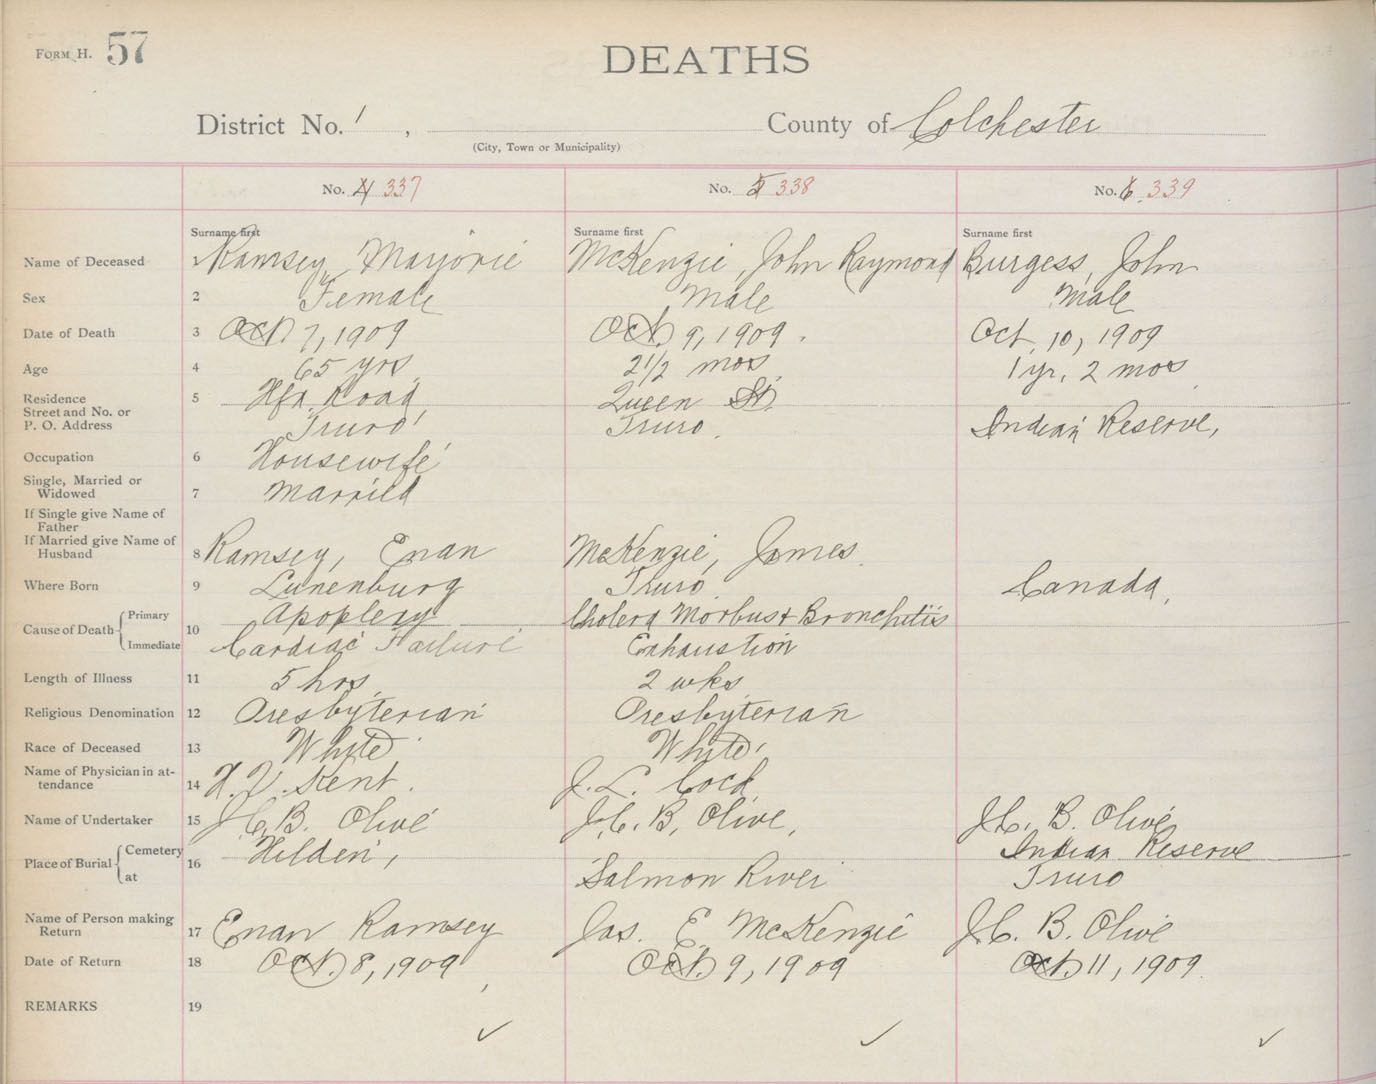 FORM H. 57
DEATHS
District No. 1, County of Colchester
(City, Town or Municipality)
No. 4 337 No. 5 338 No. 6. 339
Surname first Surname first Surname first
Name of Deceased 1 Ramsey, Marjorie McKenzie, John Raymond Burgess, John
Sex 2 Female Male Male
Date of Death 3 Oct. 7, 1909 Oct. 9, 1909. Oct. 10, 1909
Age 4 65 yrs 2 1/2 mos 1 yr. 2 mos
Residence 5 Hfx Road, Queen St.
Street and No. or
P. O. Address Truro Truro. Indian Reserve,
Occupation 6 Housewife
Single, Married or
Widowed 7 Married
If Single give Name of
Father
If Married give Name of
Husband 8 Ramsey, Enan McKenzie, James.
Where Born 9 Lunenburg Truro Canada,
Cause of Death Primary Apoplexy Cholera Morbus & Bronchitis
10
Immediate Cardiac Failure Exhaustion
Length of Illness 11 5 hrs 2 wks
Religious Denomination 12 Presbyterian Presbyterian
Race of Deceased 13 White White
Name of Physician in at-
tendance 14 H. V. Kent. J. L. Cock
Name of Undertaker 15 J. C. B. Olive J. C. B. Olive, J. C. B. Olive
Place of Burial Cemetery 16 Hilden, Indian Reserve
at Salmon River Truro
Name of Person making
Return 17 Enan Ramsey Jas. E. McKenzie J. C. B. Olive
Date of Return 18 Oct. 8, 1909, Oct. 9, 1909 Oct. 11, 1909.
REMARKS 19